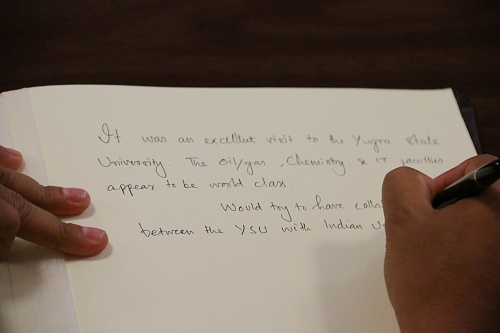 It was an excellent visit to the Yugra State
University. The Oil/gas, Chemistry & IT faculties
appear to be world class
Would try to have
between the YSU with Indian